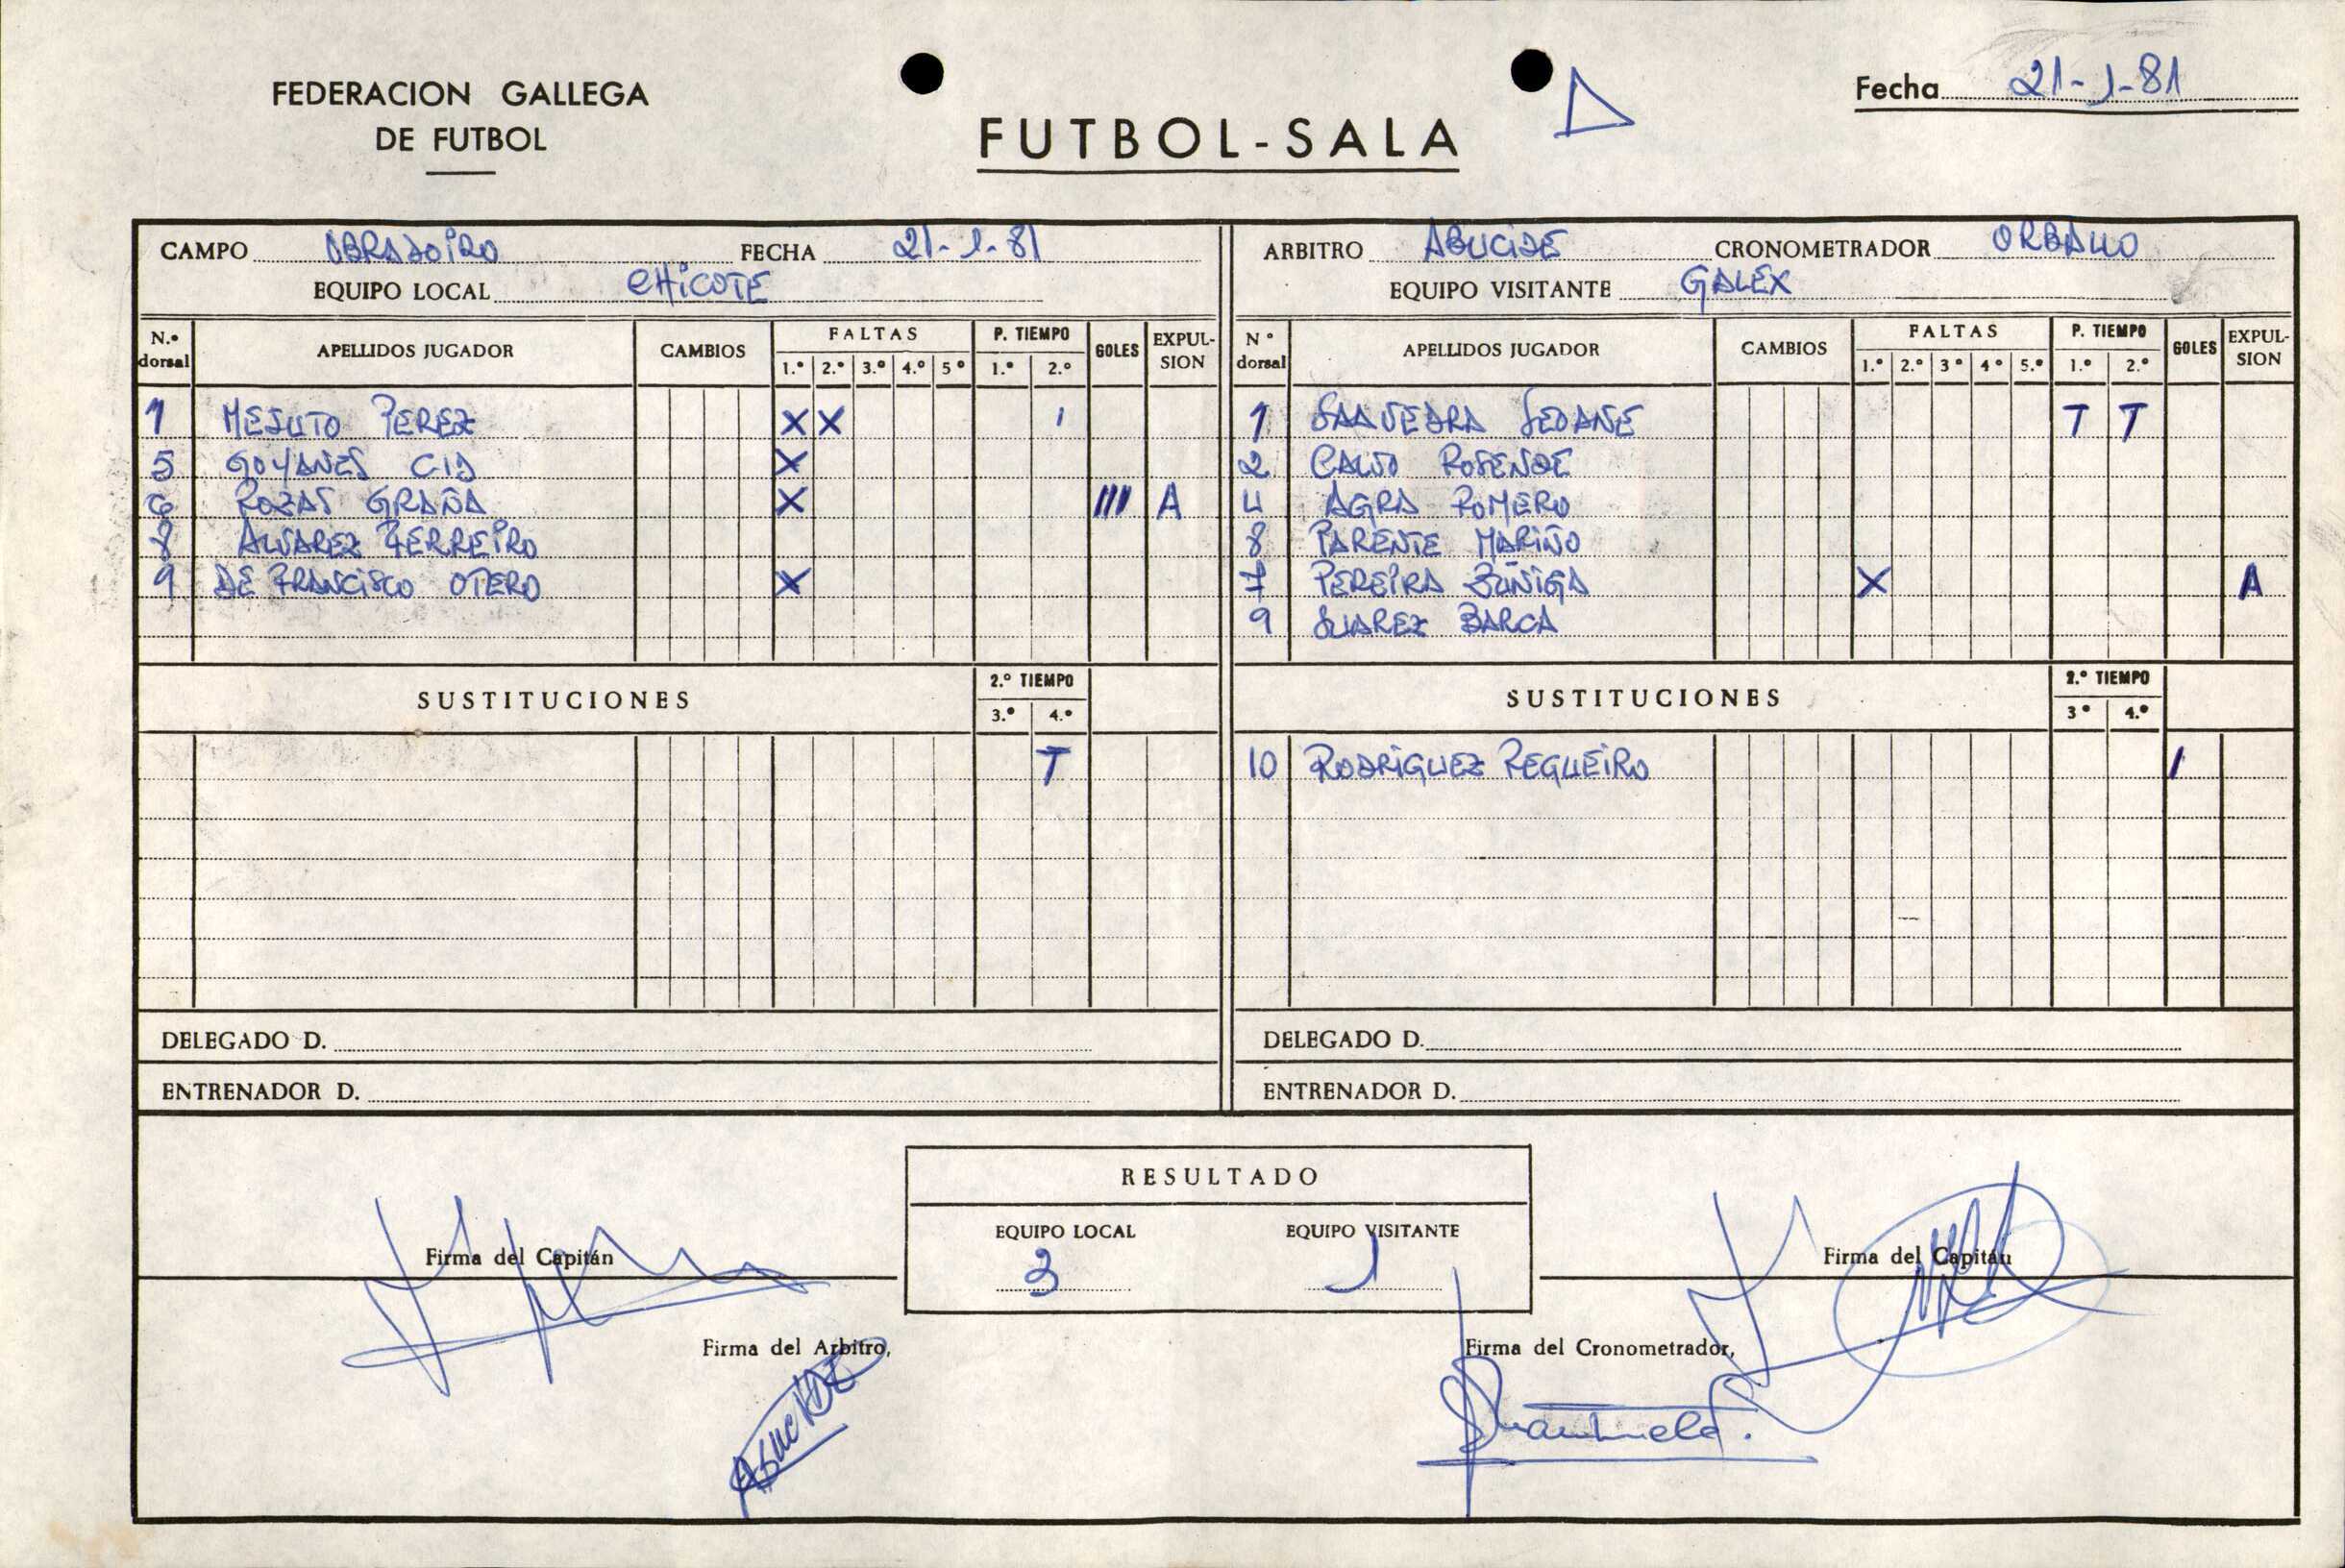 FEDERACION GALLEGA
DE FUTBOL
FUTBOL-SALA
Fecha 21-1-81
CAMPO OBRADOIRO FECHA 21-1-81
EQUIPO LOCAL CHICOTE
N.º dorsal APELLIDOS JUGADOR CAMBIOS FALTAS 1.º 2.º 3.º 4.º 5º P. TIEMPO 1.º 2.º GOLES EXPULSION
1 MEJUTO PEREZ X X '
5 GOYANES CID X
6 ROZAS GRAÑA X III A
8 ALVAREZ FERREIRO
9 DE FRANCISCO OTERO X
SUSTITUCIONES 2.º TIEMPO 3.º 4.º
T
DELEGADO D.
ENTRENADOR D.
ARBITRO ABUCIDE CRONOMETRADOR ORBALLO
EQUIPO VISITANTE GALEX
Nº dorsal APELLIDOS JUGADOR CAMBIOS FALTAS 1.º 2.º 3º 4º 5.º P. TIEMPO 1.º 2.º GOLES EXPULSION
1 SAAVEDRA SEOANE T T
2 CALVO ROSENDE
4 AGRA ROMERO
8 PARENTE MARIÑO
7 PEREIRA ZUÑIGA X A
9 SUAREZ BARCA
SUSTITUCIONES 2.º TIEMPO 3º 4.º
10 RODRIGUEZ REGUEIRO I
DELEGADO D.
ENTRENADOR D.
RESULTADO
EQUIPO LOCAL EQUIPO VISITANTE
3 1
Firma del Capitán
Firma del Capitán
Firma del Arbitro,
ABUCIDE
Firma del Cronometrador,